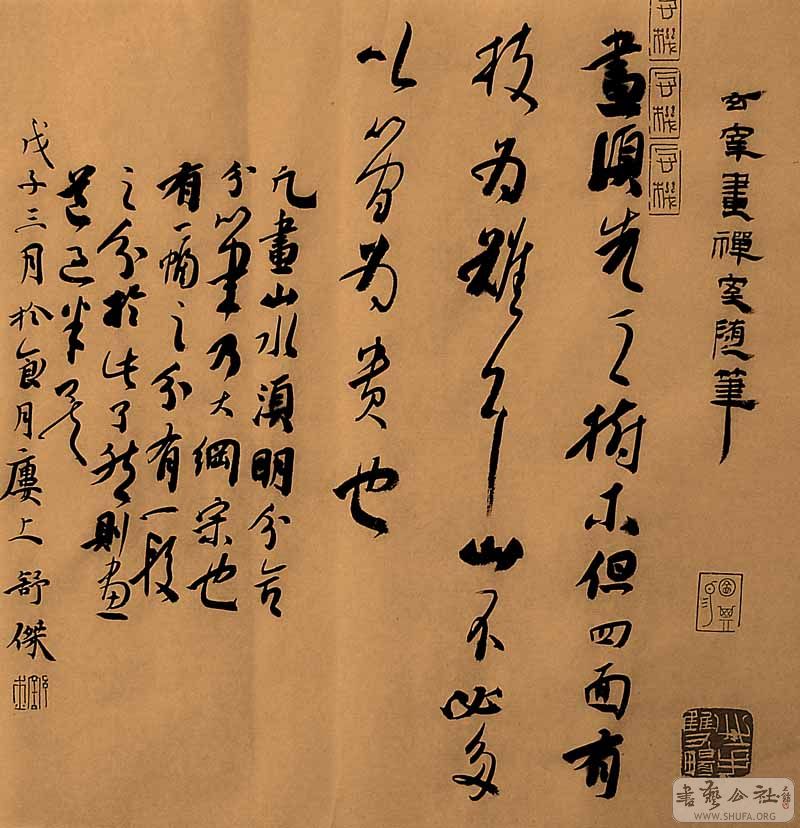 玄宰畫禪室随筆
畫須先工樹木但四面有
枝為難耳山不必多
以簡為貴也
凡畫山水須明分合
分筆乃大綱宗也
有一幅之分有一段
之分於此了然則畫
道過半矣
戊子三月於食月廔上舒傑
書藝公社
WWW.SHUFA.ORG